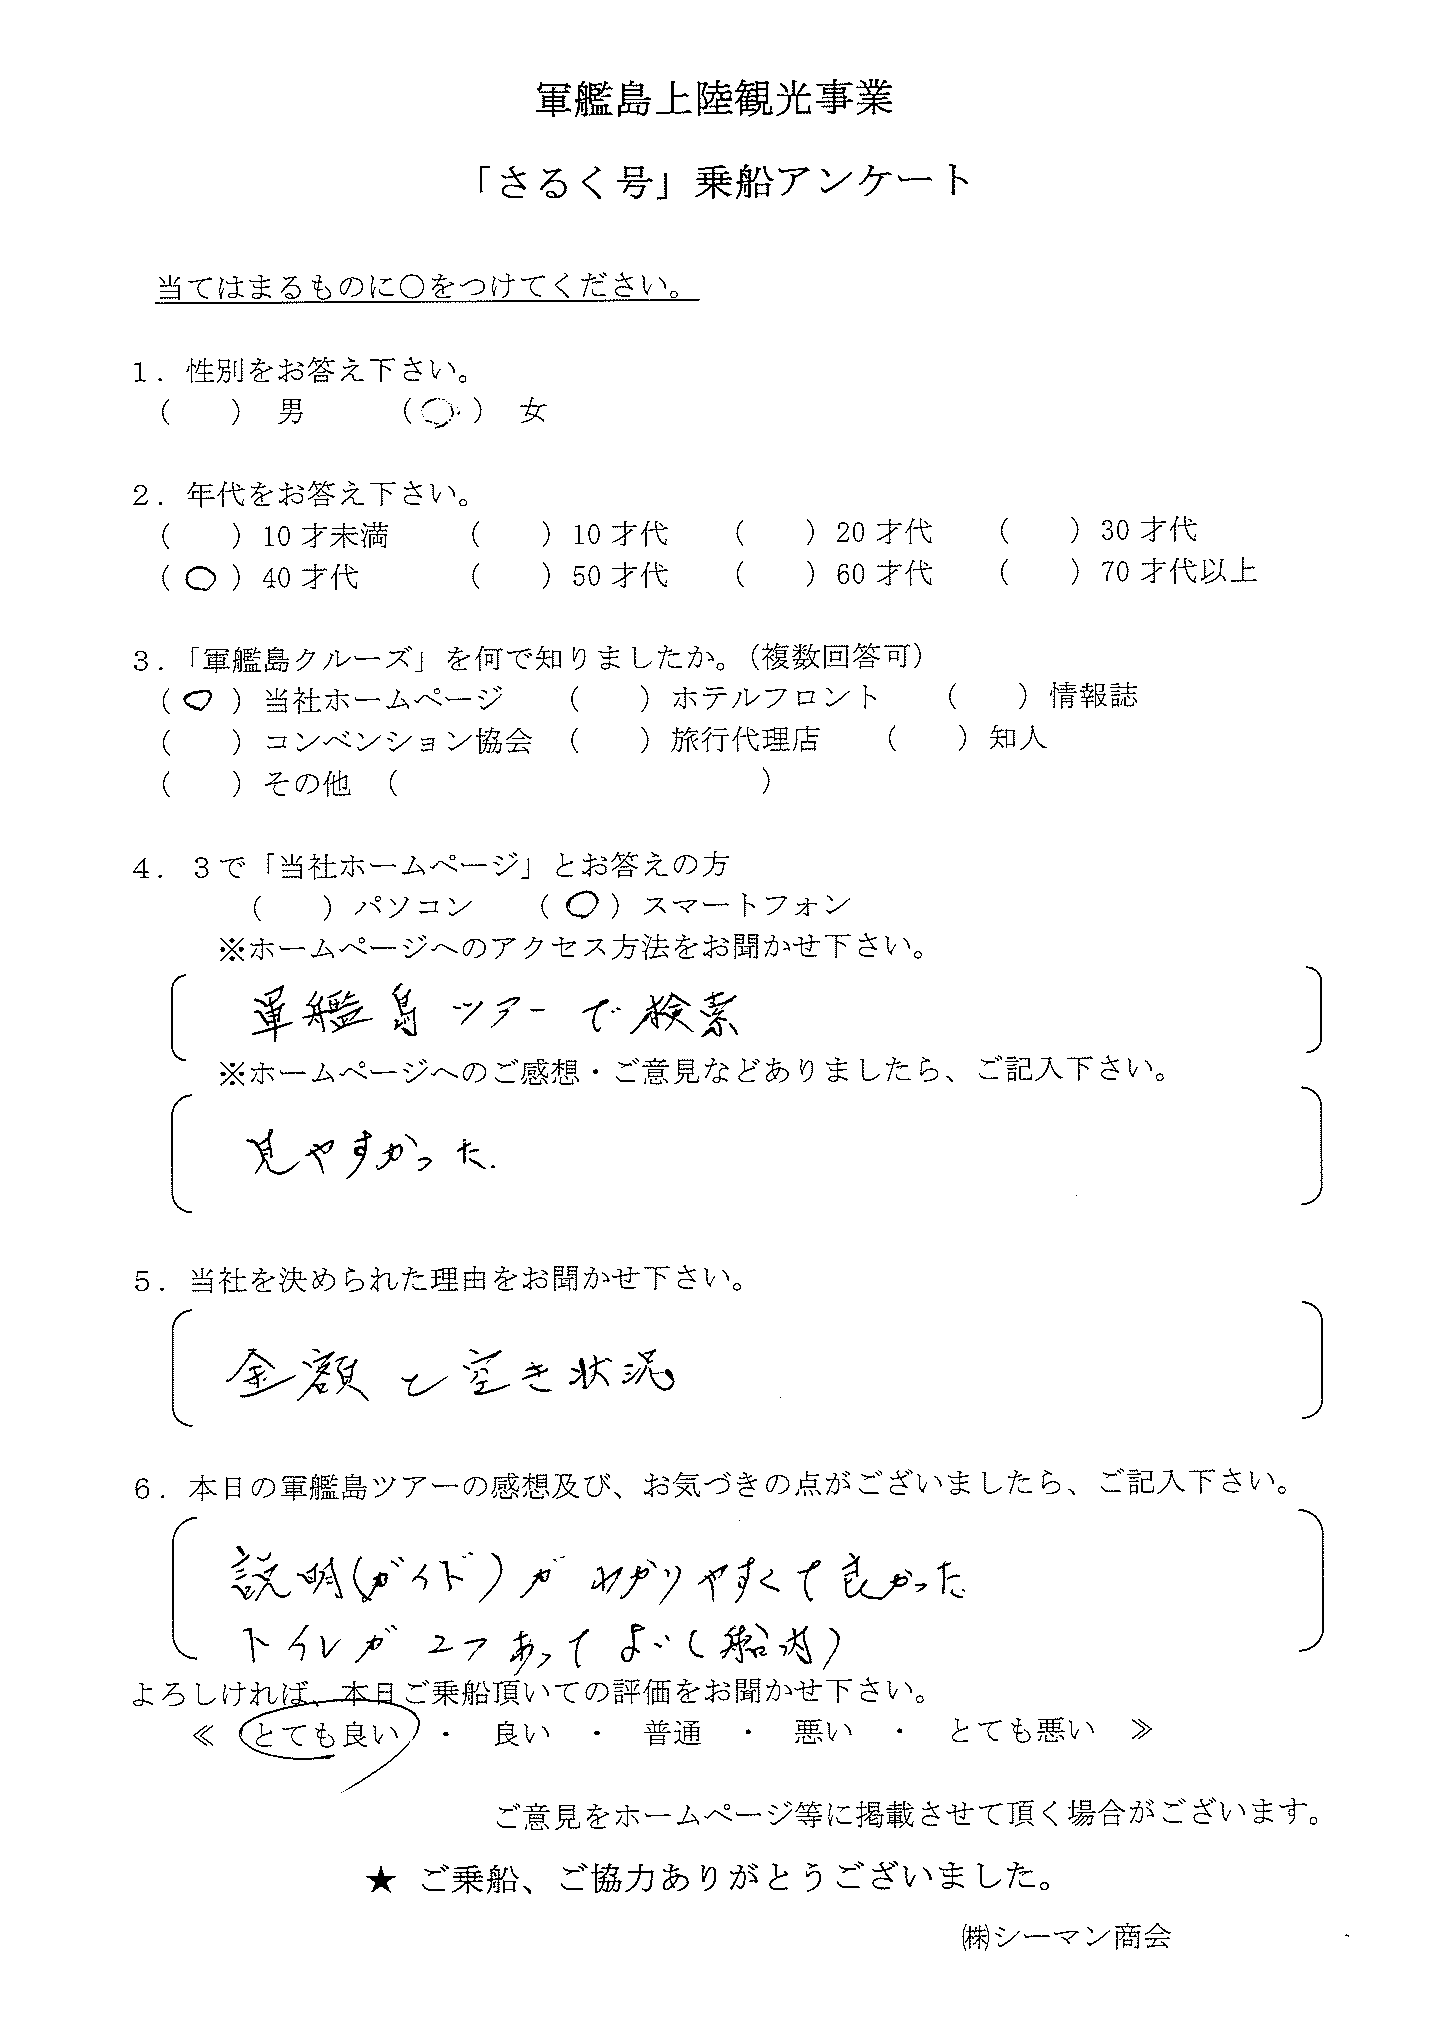 軍艦島上陸観光事業
「さるく号」乗船アンケート
当てはまるものに〇をつけてください。
１．性別をお答え下さい。
(　　) 男　　(○) 女
２．年代をお答え下さい。
(　　) 10才未満　　(　　) 10才代　　(　　) 20才代　　(　　) 30才代
(○) 40才代　　(　　) 50才代　　(　　) 60才代　　(　　) 70才代以上
３．「軍艦島クルーズ」を何で知りましたか。（複数回答可）
(○) 当社ホームページ　　(　　) ホテルフロント　　(　　) 情報誌
(　　) コンベンション協会　(　　) 旅行代理店　　(　　) 知人
(　　) その他　(　　　　　　　　　　)
４．３で「当社ホームページ」とお答えの方
(　　) パソコン　　(○) スマートフォン
※ホームページへのアクセス方法をお聞かせ下さい。
軍艦島ツアーで検索
※ホームページへのご感想・ご意見などありましたら、ご記入下さい。
見やすかった.
５．当社を決められた理由をお聞かせ下さい。
金額と空き状況
６．本日の軍艦島ツアーの感想及び、お気づきの点がございましたら、ご記入下さい。
説明(ガイド)がわかりやすくて良かった
トイレが2つあってよい(船内)
よろしければ、本日ご乗船頂いての評価をお聞かせ下さい。
≪　とても良い　・　良い　・　普通　・　悪い　・　とても悪い　≫
ご意見をホームページ等に掲載させて頂く場合がございます。
★　ご乗船、ご協力ありがとうございました。
㈱シーマン商会